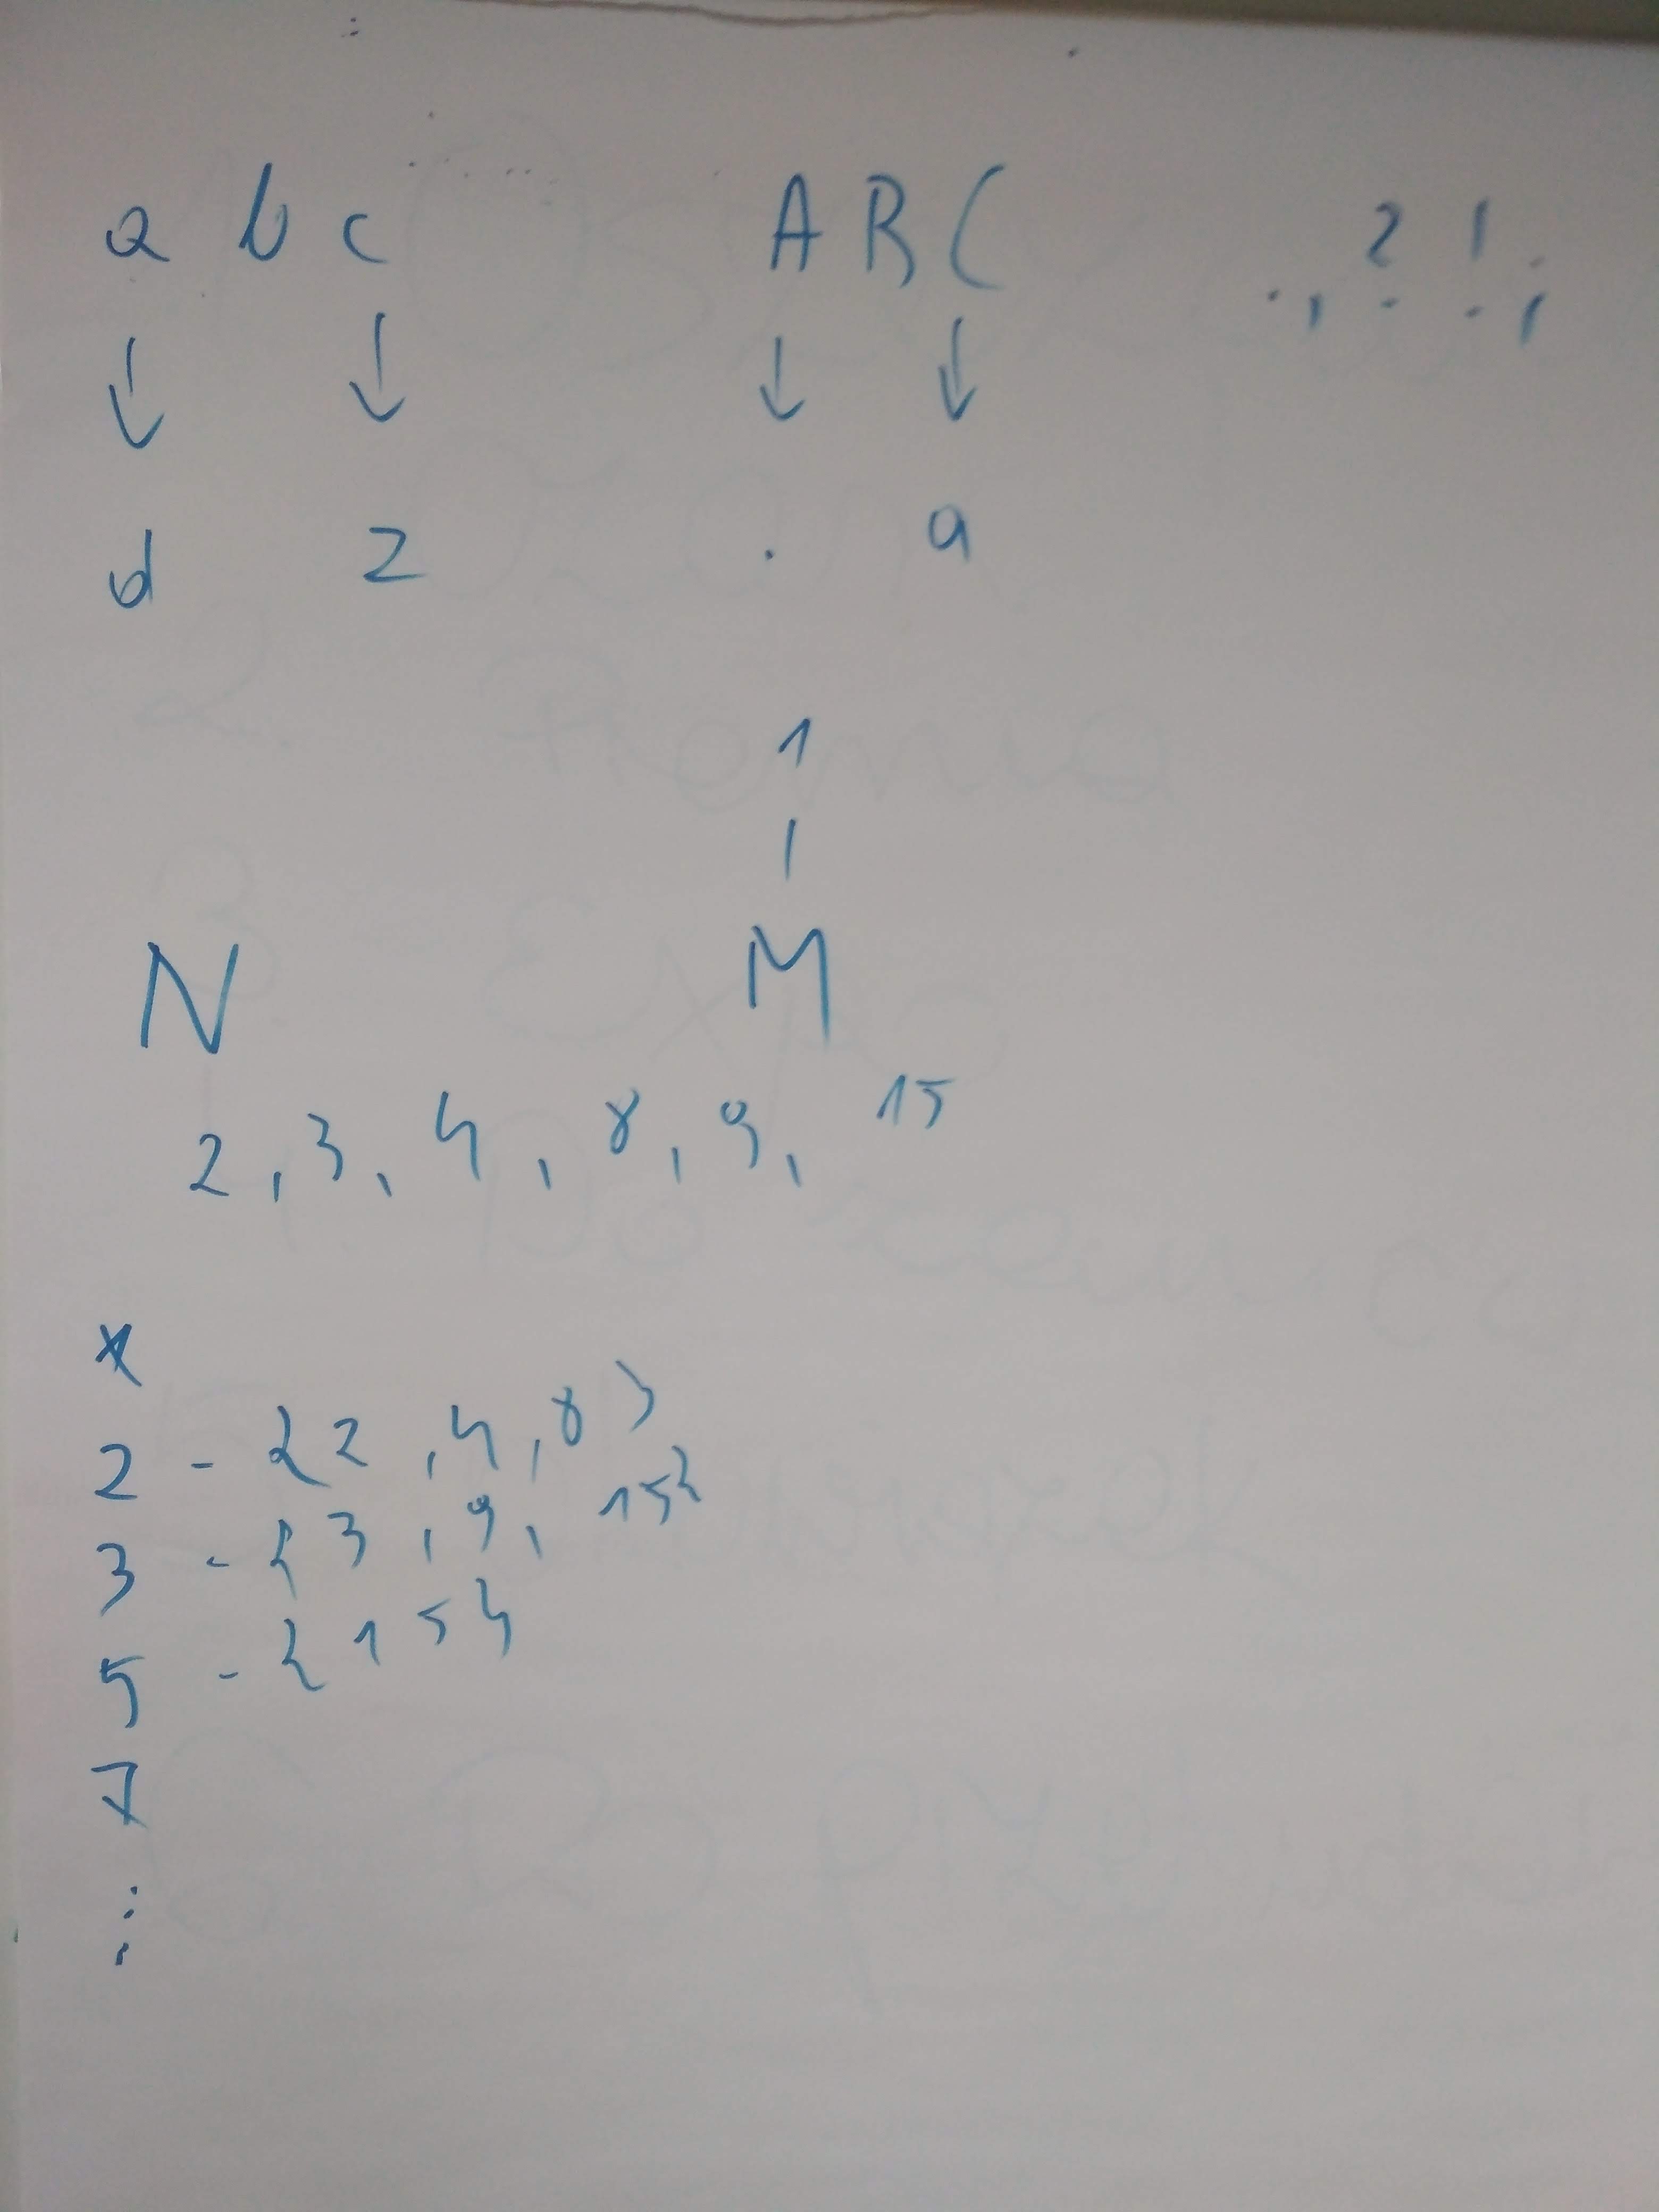 a b c A B C . , ? ! ;
↓ ↓ ↓ ↓
d z . a
1
|
N M
2, 3, 4, 8, 9, 15
*
2 - {2, 4, 8}
3 - {3, 9, 15}
5 - {15}
7
⋮